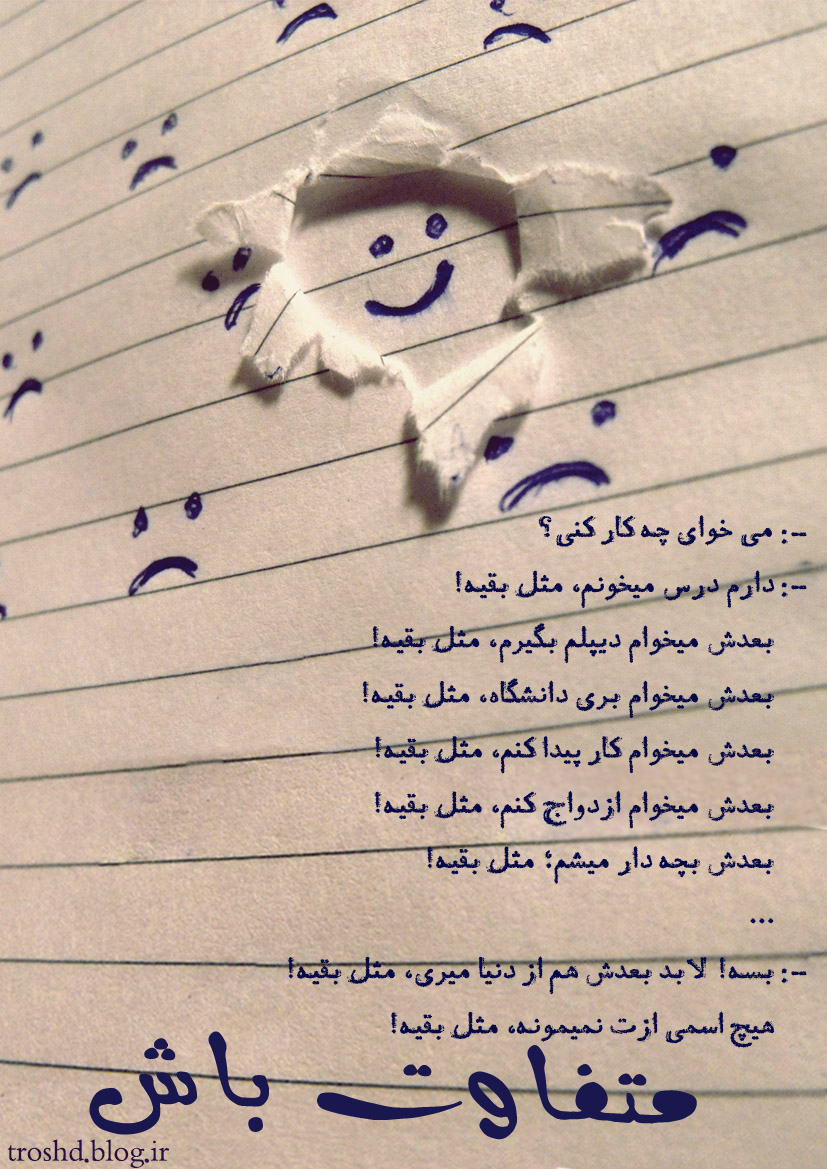 -: می خوای چه کار کنی؟
-: دارم درس میخونم، مثل بقیه!
بعدش میخوام دیپلم بگیرم، مثل بقیه!
بعدش میخوام بری دانشگاه، مثل بقیه!
بعدش میخوام کار پیدا کنم، مثل بقیه!
بعدش میخوام ازدواج کنم، مثل بقیه!
بعدش بچه دار میشم؛ مثل بقیه!
...
-: بسه! لابد بعدش هم از دنیا میری، مثل بقیه!
هیچ اسمی ازت نمیمونه، مثل بقیه!
متفاوت باش
troshd.blog.ir